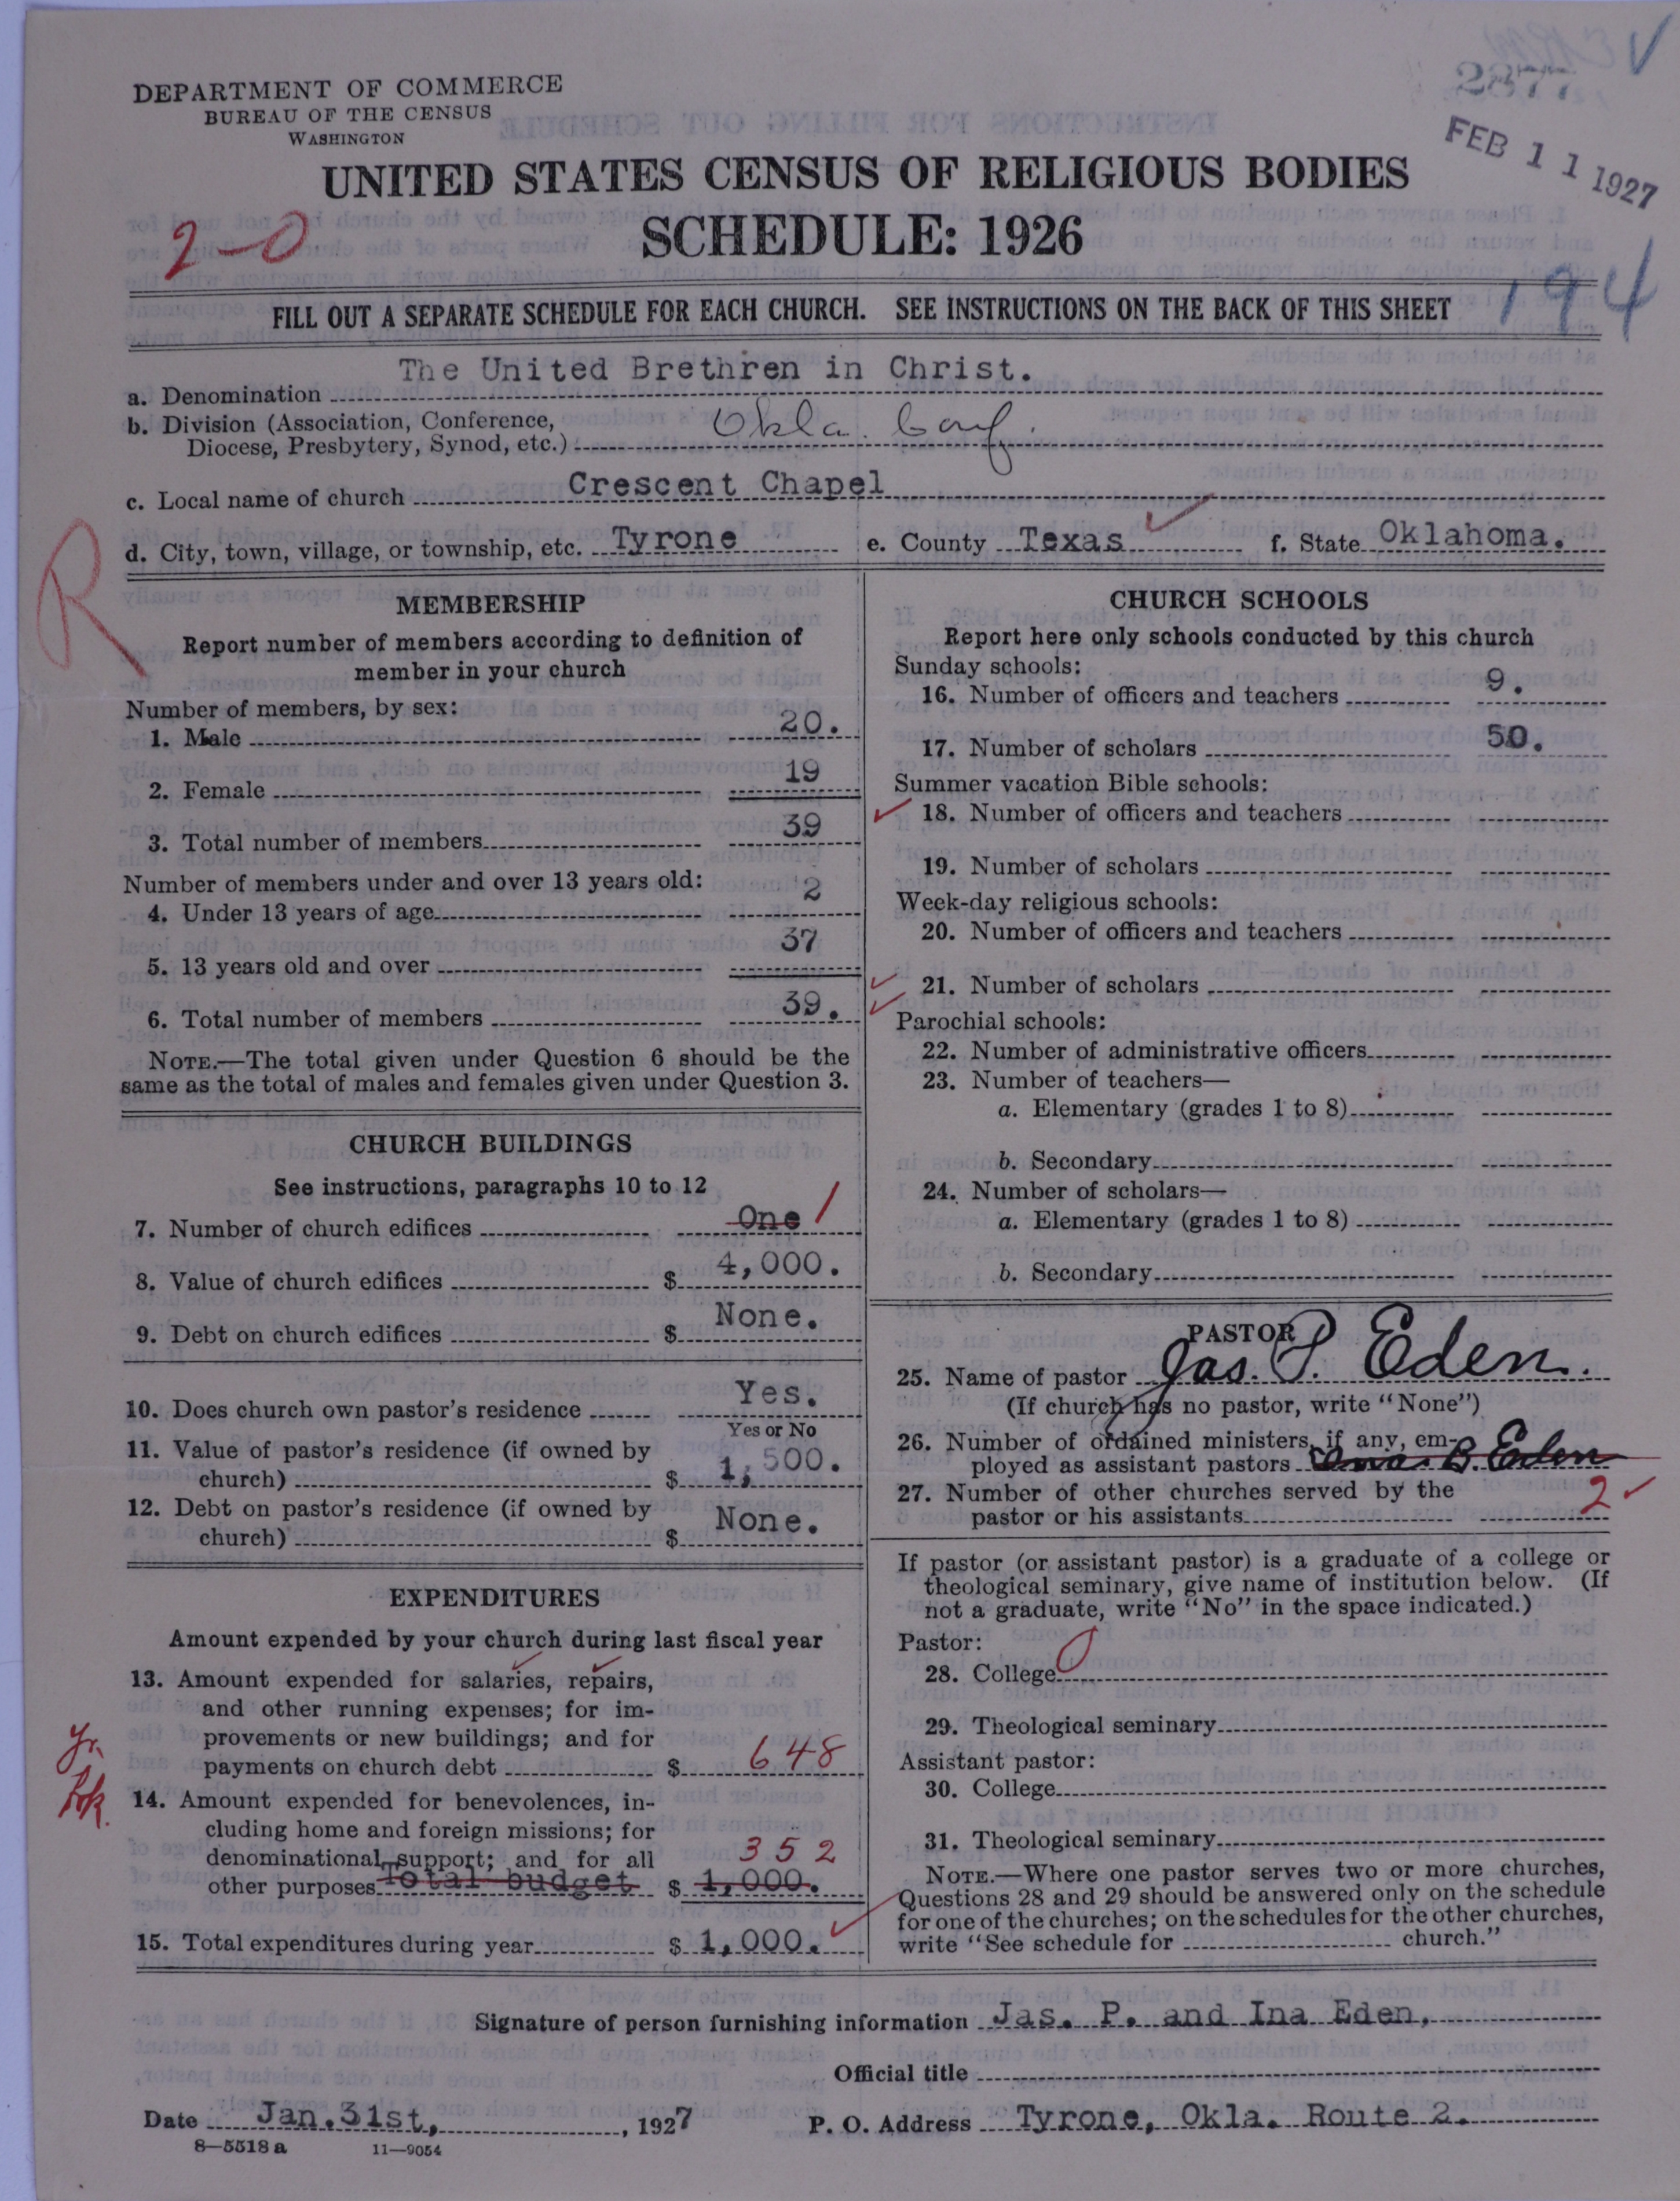 DEPARTMENT OF COMMERCE
BUREAU OF THE CENSUS
WASHINGTON
2877
FEB 11 1927
UNITED STATES CENSUS OF RELIGIOUS BODIES
SCHEDULE: 1926
2-0
194
FILL OUT A SEPARATE SCHEDULE FOR EACH CHURCH. SEE INSTRUCTIONS ON THE BACK OF THIS SHEET
a. Denomination The United Brethren in Christ.
b. Division (Association, Conference,
Diocese, Presbytery, Synod, etc.) Okla. Conf.
c. Local name of church Crescent Chapel
d. City, town, village, or township, etc. Tyrone e. County Texas f. State Oklahoma.
R
MEMBERSHIP
Report number of members according to definition of
member in your church
Number of members, by sex:
1. Male 20.
2. Female 19
3. Total number of members 39
Number of members under and over 13 years old:
4. Under 13 years of age 2
5. 13 years old and over 37
6. Total number of members 39.
NOTE.—The total given under Question 6 should be the
same as the total of males and females given under Question 3.
CHURCH BUILDINGS
See instructions, paragraphs 10 to 12
7. Number of church edifices One 1
8. Value of church edifices $ 4,000.
9. Debt on church edifices $ None.
10. Does church own pastor's residence Yes.
Yes or No
11. Value of pastor's residence (if owned by
church) $ 1,500.
12. Debt on pastor's residence (if owned by
church) $ None.
EXPENDITURES
Amount expended by your church during last fiscal year
13. Amount expended for salaries, repairs,
and other running expenses; for im-
provements or new buildings; and for
payments on church debt $ 648
Yr.
Bk.
14. Amount expended for benevolences, in-
cluding home and foreign missions; for
denominational support; and for all 352
other purposes Total budget $ 1,000.
15. Total expenditures during year $ 1,000.
CHURCH SCHOOLS
Report here only schools conducted by this church
Sunday schools:
16. Number of officers and teachers 9.
17. Number of scholars 50.
Summer vacation Bible schools:
18. Number of officers and teachers
19. Number of scholars
Week-day religious schools:
20. Number of officers and teachers
21. Number of scholars
Parochial schools:
22. Number of administrative officers
23. Number of teachers—
a. Elementary (grades 1 to 8)
b. Secondary
24. Number of scholars—
a. Elementary (grades 1 to 8)
b. Secondary
PASTOR
25. Name of pastor Jas. P. Eden.
(If church has no pastor, write "None")
26. Number of ordained ministers, if any, em-
ployed as assistant pastors Ina B. Eden
27. Number of other churches served by the
pastor or his assistants 2
If pastor (or assistant pastor) is a graduate of a college or
theological seminary, give name of institution below. (If
not a graduate, write "No" in the space indicated.)
Pastor:
28. College 0
29. Theological seminary
Assistant pastor:
30. College
31. Theological seminary
NOTE.—Where one pastor serves two or more churches,
Questions 28 and 29 should be answered only on the schedule
for one of the churches; on the schedules for the other churches,
write "See schedule for church."
Signature of person furnishing information Jas. P. and Ina Eden,
Official title
Date Jan. 31st, , 1927 P. O. Address Tyrone, Okla. Route 2.
8—5518 a 11—9054